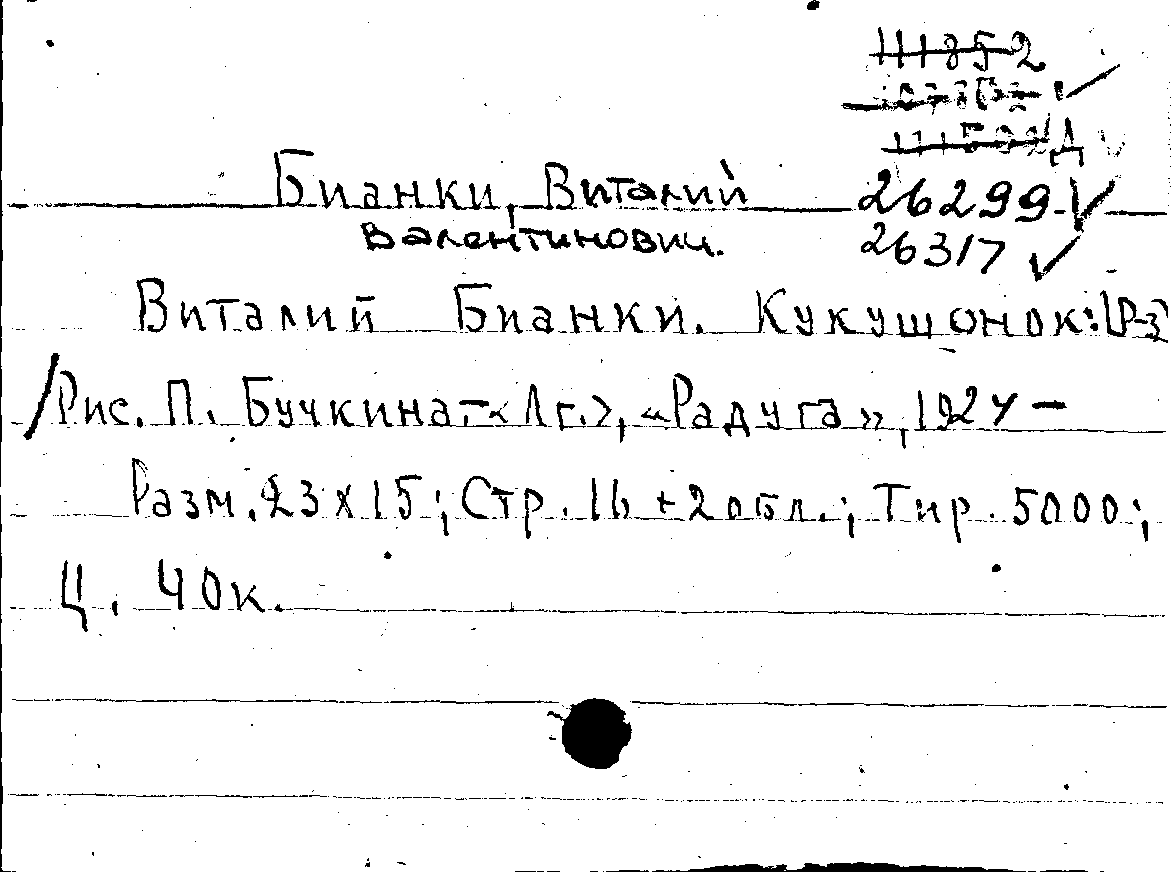 111852
26299 ✓
Бианки, Виталий
Валентинович.
26317 ✓
Виталий Бианки. Кукушонок:
Рис. П. Бучкина. – <Лг.>, «Радуга», 1924 –
Разм. 23 х 15; Стр. 16 + 2 обл.; Тир. 5000;
Ц. 40 к.